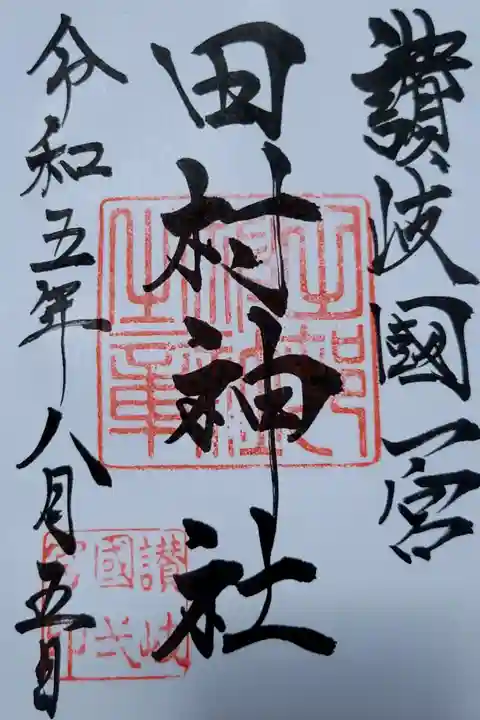 讃岐國一宮
田村神社
令和五年八月五日
讃岐
國一
宮印